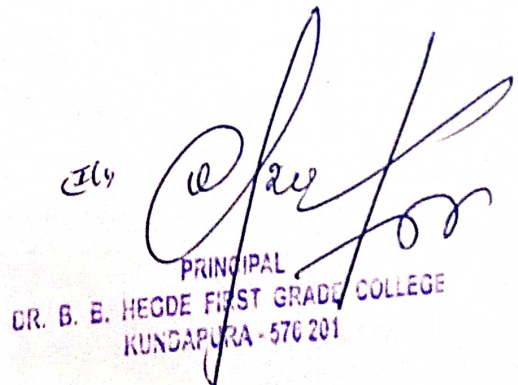 PRINCIPAL
DR. B. B. HEGDE FIRST GRADE COLLEGE
KUNDAPURA - 576 201